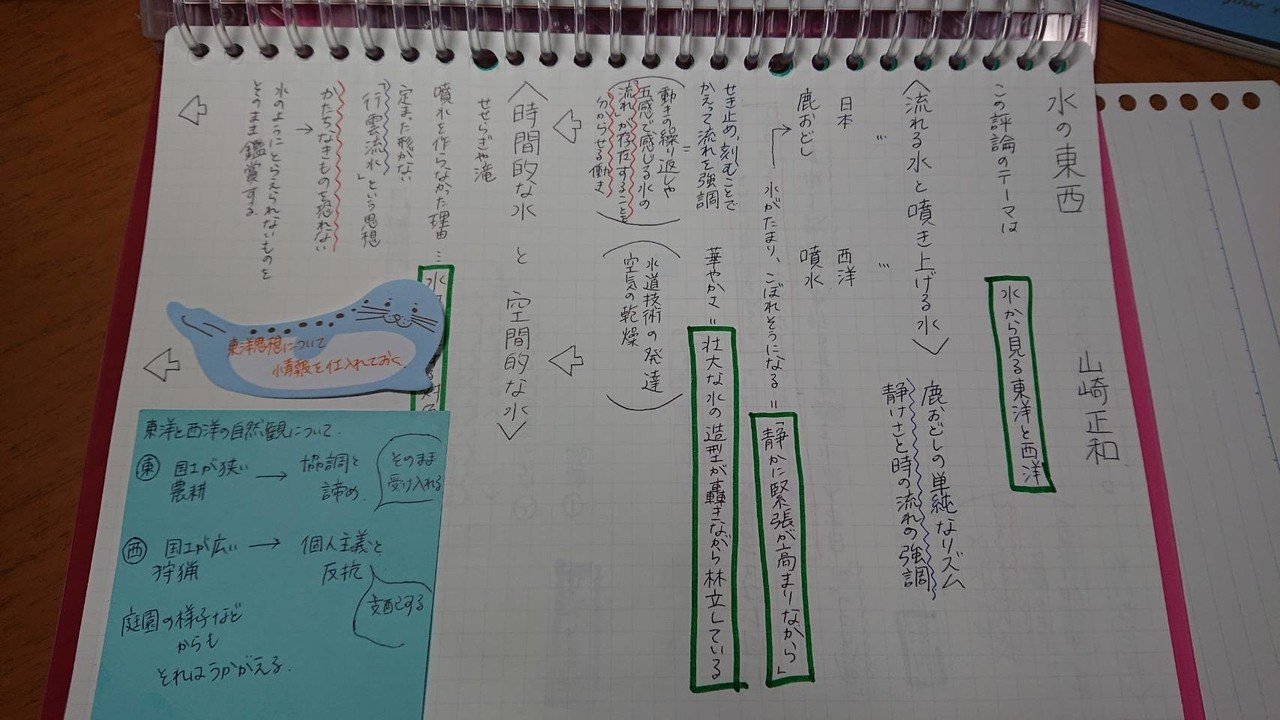 水の東西
山崎正和
この評論のテーマは
水から見る東洋と西洋
〈流れる水と噴き上げる水〉
鹿おどしの単純なリズム
静けさと時の流れの強調
日本
〃
西洋
〃
鹿おどし
噴水
水がたまり、こぼれそうになる=「静かに緊張が高まりながら」
せき止め、刻むことで
かえって流れを強調
=
動きの繰り返しや
五感で感じる水の
流れが存在することを
分からせる働き
華やかさ=壮大な水の造型が轟きながら林立している
水道技術の発達
空気の乾燥
〈時間的な水と空間的な水〉
せせらぎや滝
噴水を作らなかった理由…
水
定まった形がない
「行雲流水」という思想
かたちなきものを恐れない
↓
水のようにとらえられないものを
そのまま鑑賞する
東洋思想について
情報を仕入れておく
東洋と西洋の自然観について.
東 国土が狭い → 協調と
農耕 諦め.
そのまま
受け入れる
西 国土が広い → 個人主義と
狩猟 反抗.
支配する
庭園の様子など
からも
それはうかがえる.